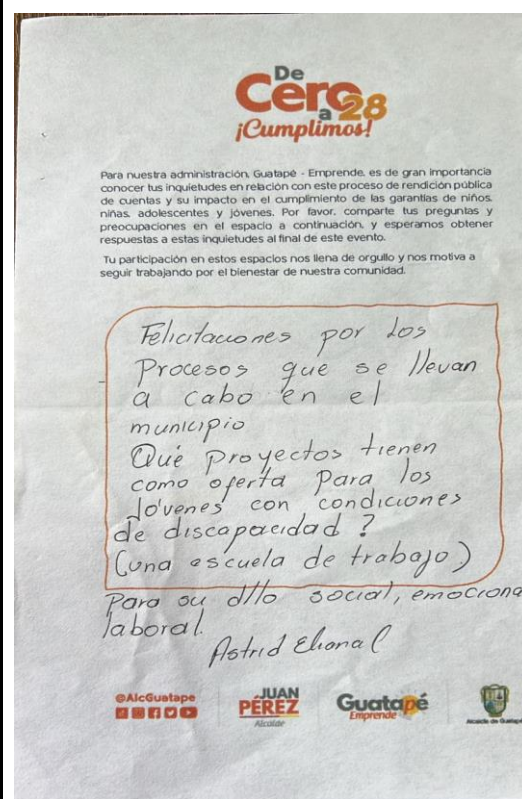 De
Cero
a 28
¡Cumplimos!
Para nuestra administración, Guatapé - Emprende, es de gran importancia
conocer tus inquietudes en relación con este proceso de rendición pública
de cuentas y su impacto en el cumplimiento de las garantías de niños,
niñas, adolescentes y jóvenes. Por favor, comparte tus preguntas y
preocupaciones en el espacio a continuación, y esperamos obtener
respuestas a estas inquietudes al final de este evento.
Tu participación en estos espacios nos llena de orgullo y nos motiva a
seguir trabajando por el bienestar de nuestra comunidad.
Felicitaciones por los
Procesos que se llevan
a cabo en el
municipio
Qué proyectos tienen
como oferta para los
Jóvenes con condiciones
de discapacidad ?
(una escuela de trabajo)
Para su d/lo social, emociona
laboral.
Astrid
@AlcGuatape
JUAN
PÉREZ
Alcalde
Guatapé
Emprende
Alcaldía de Guatapé